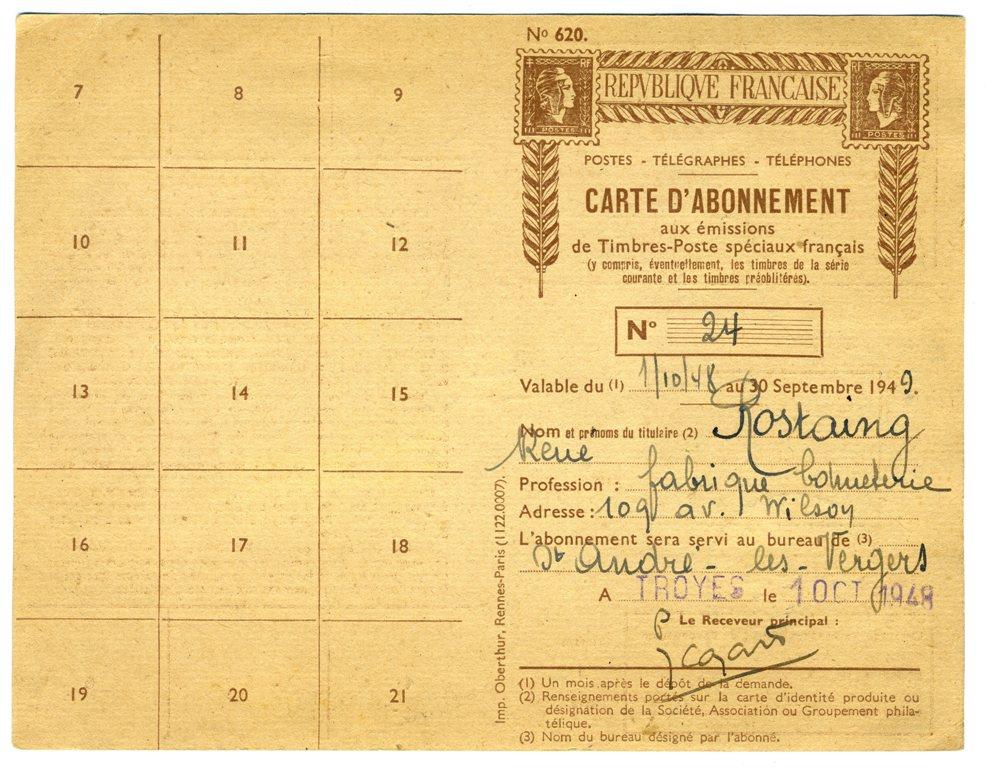 7 8 9
10 11 12
13 14 15
16 17 18
19 20 21
Nº 620.
RF RF
REPVBLIQVE FRANÇAISE
POSTES POSTES
POSTES - TÉLÉGRAPHES - TÉLÉPHONES
CARTE D'ABONNEMENT
aux émissions
de Timbres-Poste spéciaux français
(y compris, éventuellement, les timbres de la série
courante et les timbres préoblitérés).
Nº 24
Valable du (1) 1/10/48 au 30 Septembre 1949.
Nom et prénoms du titulaire (2) Rostaing
René
Profession : fabrique bonneterie
Adresse : 109 av. Wilson
L'abonnement sera servi au bureau de (3)
St André - les - Vergers
A TROYES le 1 OCT 1948
P Le Receveur principal :
(1) Un mois après le dépôt de la demande.
(2) Renseignements portés sur la carte d'identité produite ou
désignation de la Société, Association ou Groupement phila-
télique.
(3) Nom du bureau désigné par l'abonné.
Imp. Oberthur, Rennes-Paris (1122.0007).